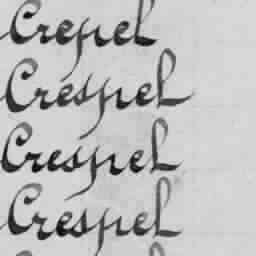 Crepel
Crespel
Crespel
Crespel